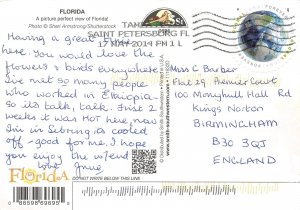 FLORIDA
A picture perfect view of Florida!
Photo © Sheri Armstrong/Shutterstock
TAMPA
SAINT PETERSBURG FL
17 MAY 2014 PM 1 L
FOREVER
Having a great time
here. You would love the
flowers & birds everywhere.
I've met so many people
who worked in Ethiopia
so its talk, talk. First 2
weeks it was HOT here, now
I'm in Sebring as cooled
off - good for me. I hope
you enjoy the w/end
Love June
Miss C Barber
Flat 29 Premier Court
100 Monyhull Hall Rd
Kings Norton
BIRMINGHAM
B30 3QJ
ENGLAND
Florida
0 66598 69895 0
DO NOT WRITE BELOW THIS LINE